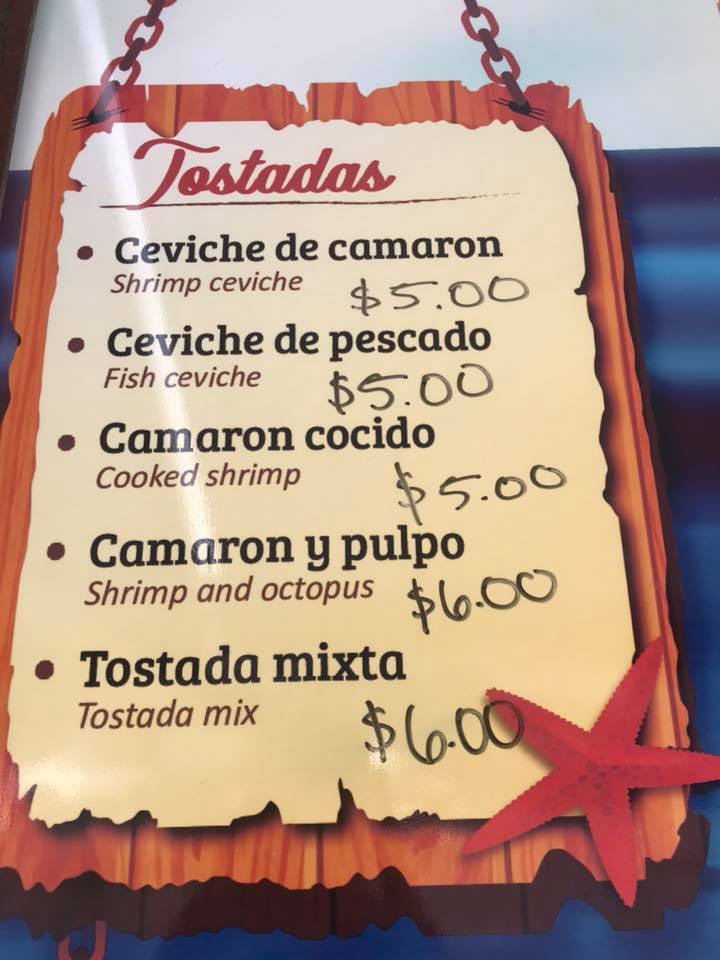 Tostadas
• Ceviche de camaron
Shrimp ceviche $5.00
• Ceviche de pescado
Fish ceviche $5.00
• Camaron cocido
Cooked shrimp $5.00
• Camaron y pulpo
Shrimp and octopus $6.00
• Tostada mixta
Tostada mix $6.00